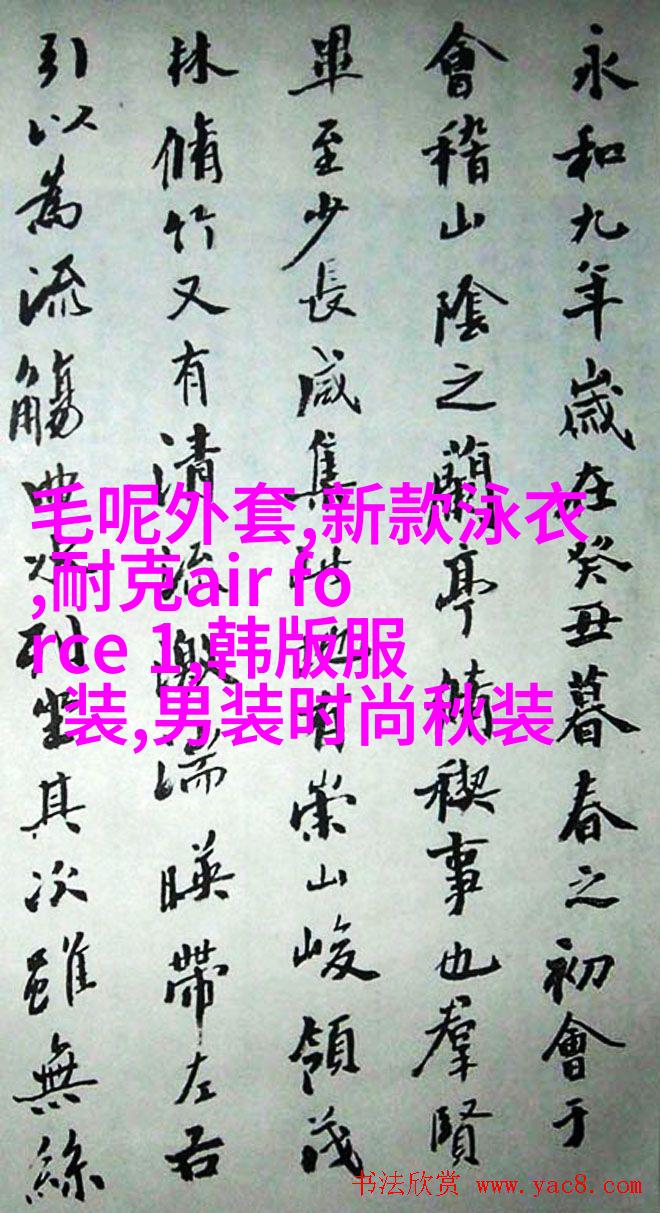 永和九年歲在癸丑暮春之初會于
會稽山陰之蘭亭脩稧事也羣賢
畢至少長咸集此地有崇山峻領茂
林脩竹又有清流激湍暎帶左右
引以為流觴曲水列坐其次雖無絲
毛呢外套,新款泳衣
,耐克air fo
rce 1,韩版服
装,男装时尚秋装
书法欣赏 www.yac8.com